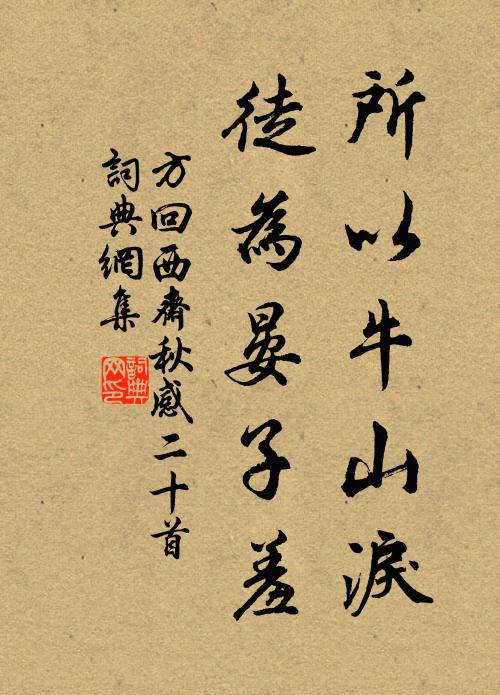 所以牛山淚
徒為晏子羞
方回西齋秋感二十首
詞典網集
詞典网印